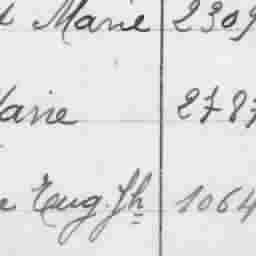 Marie 2309
Marie 2787
Eug. Jh 1064